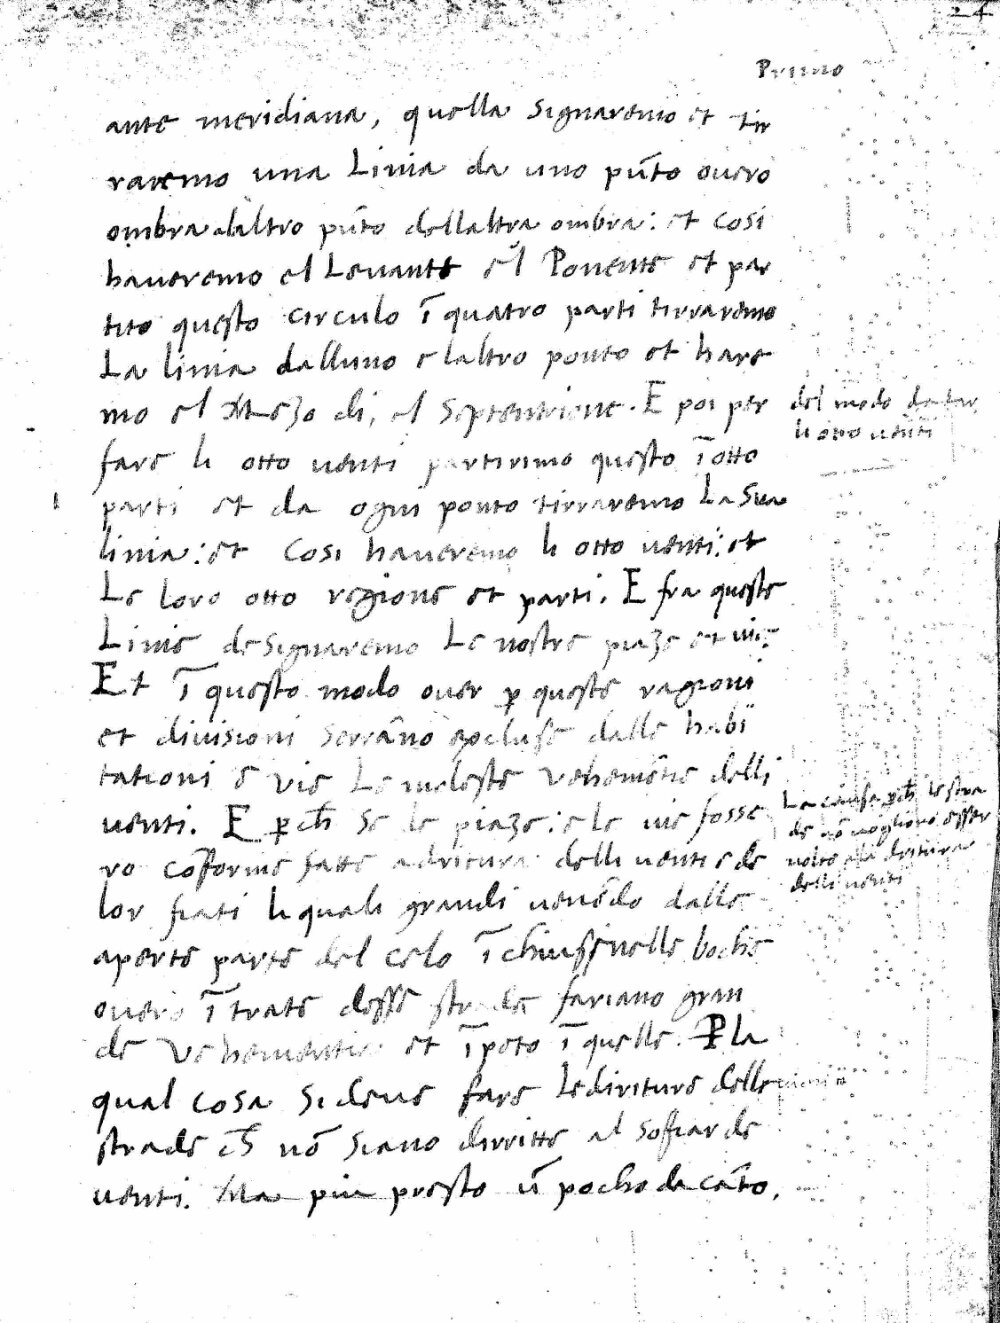 24
Primo
ante meridiana, quella signaremo et tir
raremo una Linia da uno pūto overo
ombra alaltro pūto dellaltra ombra: et cosi
haveremo el Levante el Ponente et par
tito questo circulo ī quatro parti tirraremo
La linia dalluno elaltro ponto et hare
mo el Mezo di, el Septentrione. E poi per
fare li otto venti partirimo questo ī otto
parti et da ogni ponto tirraremo La Sua
linia: et cosi haveremo li otto venti: et
Le loro otto regione et parti. E fra queste
Linie designaremo Le nostre piaze et vie:
Et ī questo modo over ꝑ queste ragioni
et divisioni serrāno excluse dalle habi
tationi e vie Le moleste vehemētie delli
venti. E ꝑch̄ se le piaze: e le vie fosse
ro cōforme fatte adritura delli venti e de
lor fiati li quali grandi venēdo dalle
aperte parte del celo ī chiusse nelle boche
overo ī trate desse strade fariano gran
de vehementie et īpeto ī quelle. Ꝑ la
qual cosa si deve fare Le diriture delle
strade ch̄ nō siano dirritte al sofiar de
venti. Ma piu presto ū pocho da cāto.
del modo de far
li otto venti
La causa ꝑch̄ le stra
de nō vogliono esser
volte alla diritura
delli venti